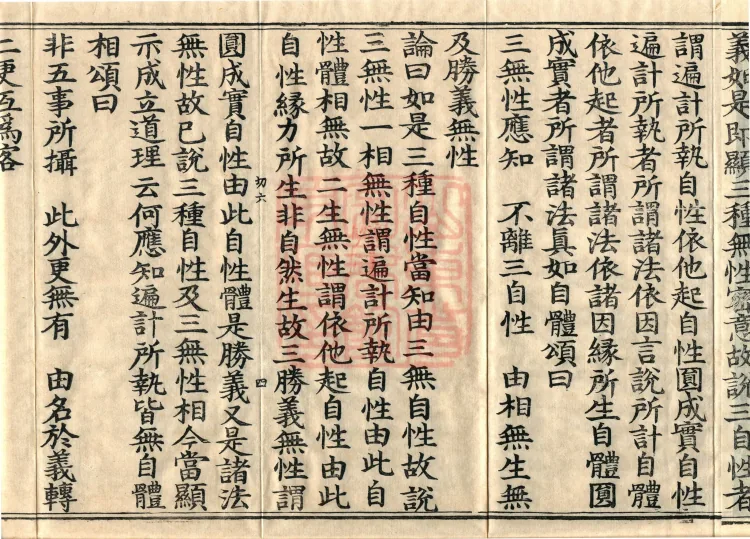 義如是即顯三種無性密意故說三自性者
謂遍計所執自性依他起自性圓成實自性
遍計所執者所謂諸法依因言說所計自體
依他起者所謂諸法依諸因緣所生自體圓
成實者所謂諸法真如自體頌曰
三無性應知　不離三自性　由相無生無
及勝義無性
論曰如是三種自性當知由三無自性故說
三無性一相無性謂遍計所執自性由此自
性體相無故二生無性謂依他起自性由此
自性緣力所生非自然生故三勝義無性謂
切六　四
圓成實自性由此自性體是勝義又是諸法
無性故已說三種自性及三無性相今當顯
示成立道理云何應知遍計所執皆無自體
相頌曰
非五事所攝　此外更無有　由名於義轉
二更互爲客